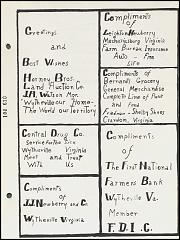 Greetings
and
Best Wishes
Horney Bros.
Land Auction Co.
Wytheville our Home-
The World our Territory
Compliments
of
Leighton Newberry
Mechanicsburg Virginia
Farm Bureau Insurance
Auto - Fire
Life
Compliments of
Bernard's Grocery
General Merchandise
Complete Line of Food
and Feed
Fredman - Shelby Shoes
Crandon, Virginia
Central Drug Co.
Service For The Sick
Wytheville Virginia
Meet and Treat
With Us
Compliments
of
J.J. Newberry and Co.
Wytheville Virginia
Compliments
of
The First National
Farmers Bank
Wytheville Va.
Member
F. D. I. C.